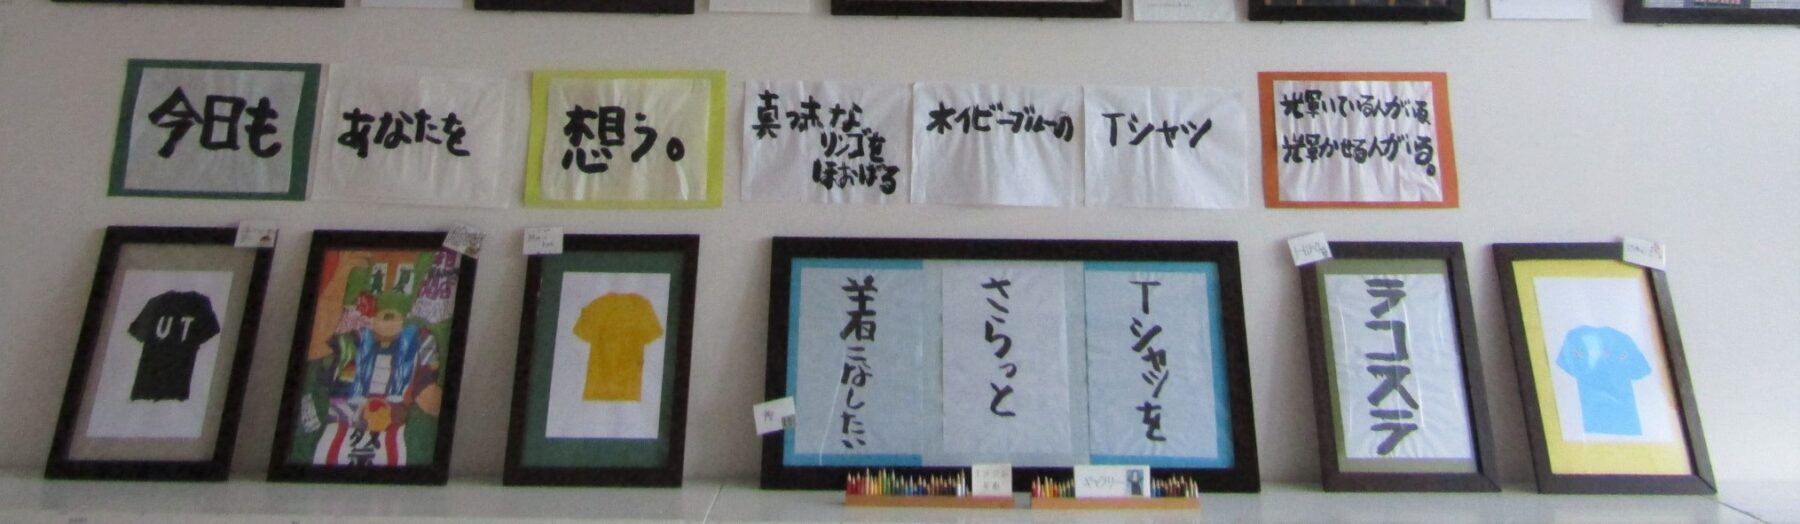 今日も
あなたを
想う。
真っ赤な
リンゴを
ほおばる
ネイビーブルーの
Tシャツ
光輝いている人がいる
光輝かせる人がいる。
UT
祭
Tシャツを
さらっと
着こなしたい
ラコステ
ギャラリー